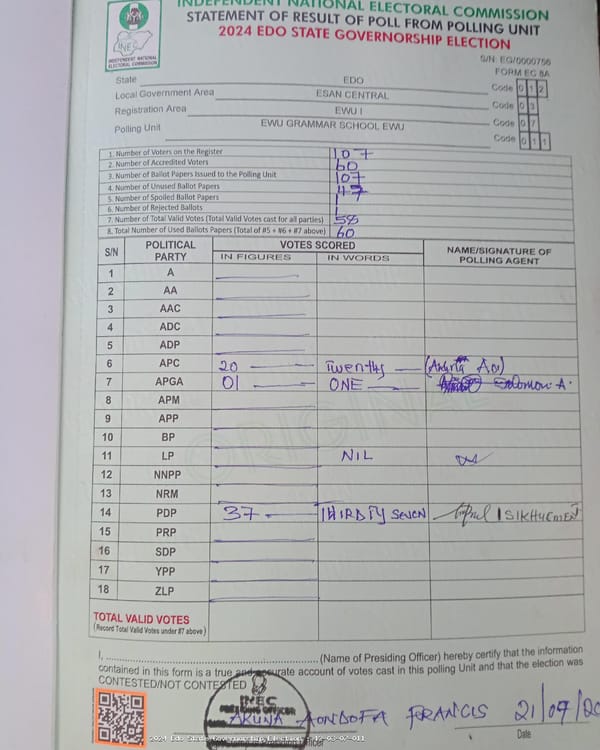 INDEPENDENT NATIONAL ELECTORAL COMMISSION
STATEMENT OF RESULT OF POLL FROM POLLING UNIT
2024 EDO STATE GOVERNORSHIP ELECTION
INEC
INDEPENDENT NATIONAL
ELECTORAL COMMISSION
S/N: EG/0000756
FORM EC 8A
State EDO Code 0 1 2
Local Government Area ESAN CENTRAL Code 0 3
Registration Area EWU I Code 0 7
Polling Unit EWU GRAMMAR SCHOOL EWU Code 0 1 1
1. Number of Voters on the Register 107
2. Number of Accredited Voters 60
3. Number of Ballot Papers Issued to the Polling Unit 107
4. Number of Unused Ballot Papers 47
5. Number of Spoiled Ballot Papers 1
6. Number of Rejected Ballots 1
7. Number of Total Valid Votes (Total Valid Votes cast for all parties) 58
8. Total Number of Used Ballots Papers (Total of #5 + #6 + #7 above) 60
S/N POLITICAL PARTY VOTES SCORED NAME/SIGNATURE OF POLLING AGENT
IN FIGURES IN WORDS
1 A
2 AA
3 AAC
4 ADC
5 ADP
6 APC 20 Twenty
7 APGA 01 ONE Solomon A.
8 APM
9 APP
10 BP
11 LP NIL
12 NNPP
13 NRM
14 PDP 37 THIRDTY SEVEN
15 PRP
16 SDP
17 YPP
18 ZLP
ORIGINAL
TOTAL VALID VOTES
(Record Total Valid Votes under #7 above)
I, (Name of Presiding Officer) hereby certify that the information
contained in this form is a true and accurate account of votes cast in this polling Unit and that the election was
CONTESTED/NOT CONTESTED
INEC
PRESIDING OFFICER
AKUNA AONDOFA FRANCIS 21/09/20
Date
2024 Edo State Governorship Election